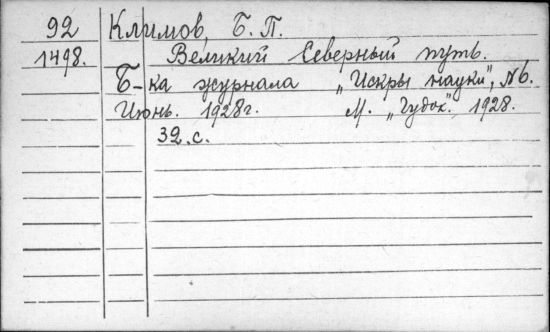 92 Климов, Б. П.
1498. Великий Северный путь.
Б-ка журнала „Искры науки", №6.
Июнь. 1928г. М. „Гудок", 1928.
32.с.